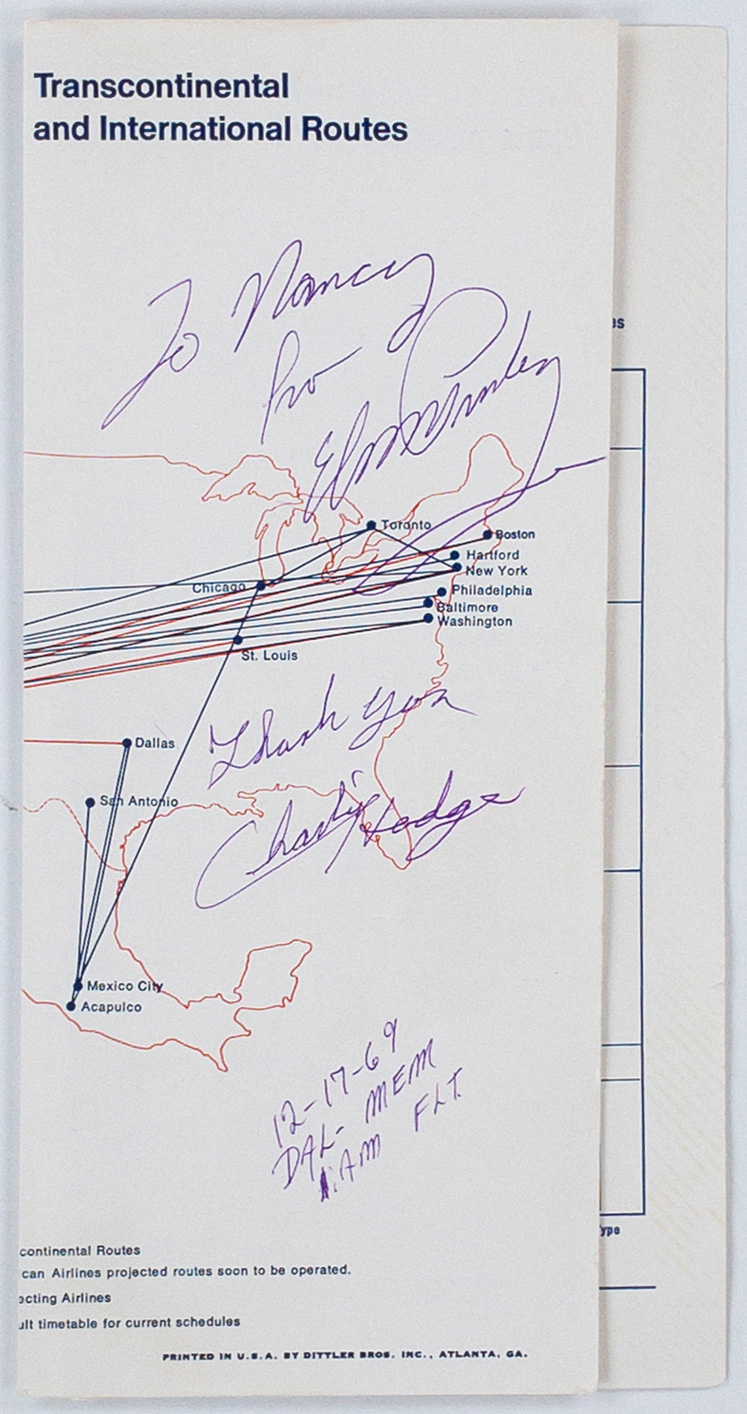 Transcontinental
and International Routes
To Nancy
from
Elvis Presley
es
Toronto
Boston
Hartford
New York
Chicago
Philadelphia
Baltimore
Washington
St. Louis
Thank you
Dallas
San Antonio
Charlie Hodge
Mexico City
Acapulco
12-17-69
DAL- MEM
1:AM FLT
Type
continental Routes
can Airlines projected routes soon to be operated.
ecting Airlines
ult timetable for current schedules
PRINTED IN U.S.A. BY DITTLER BROS. INC., ATLANTA, GA.